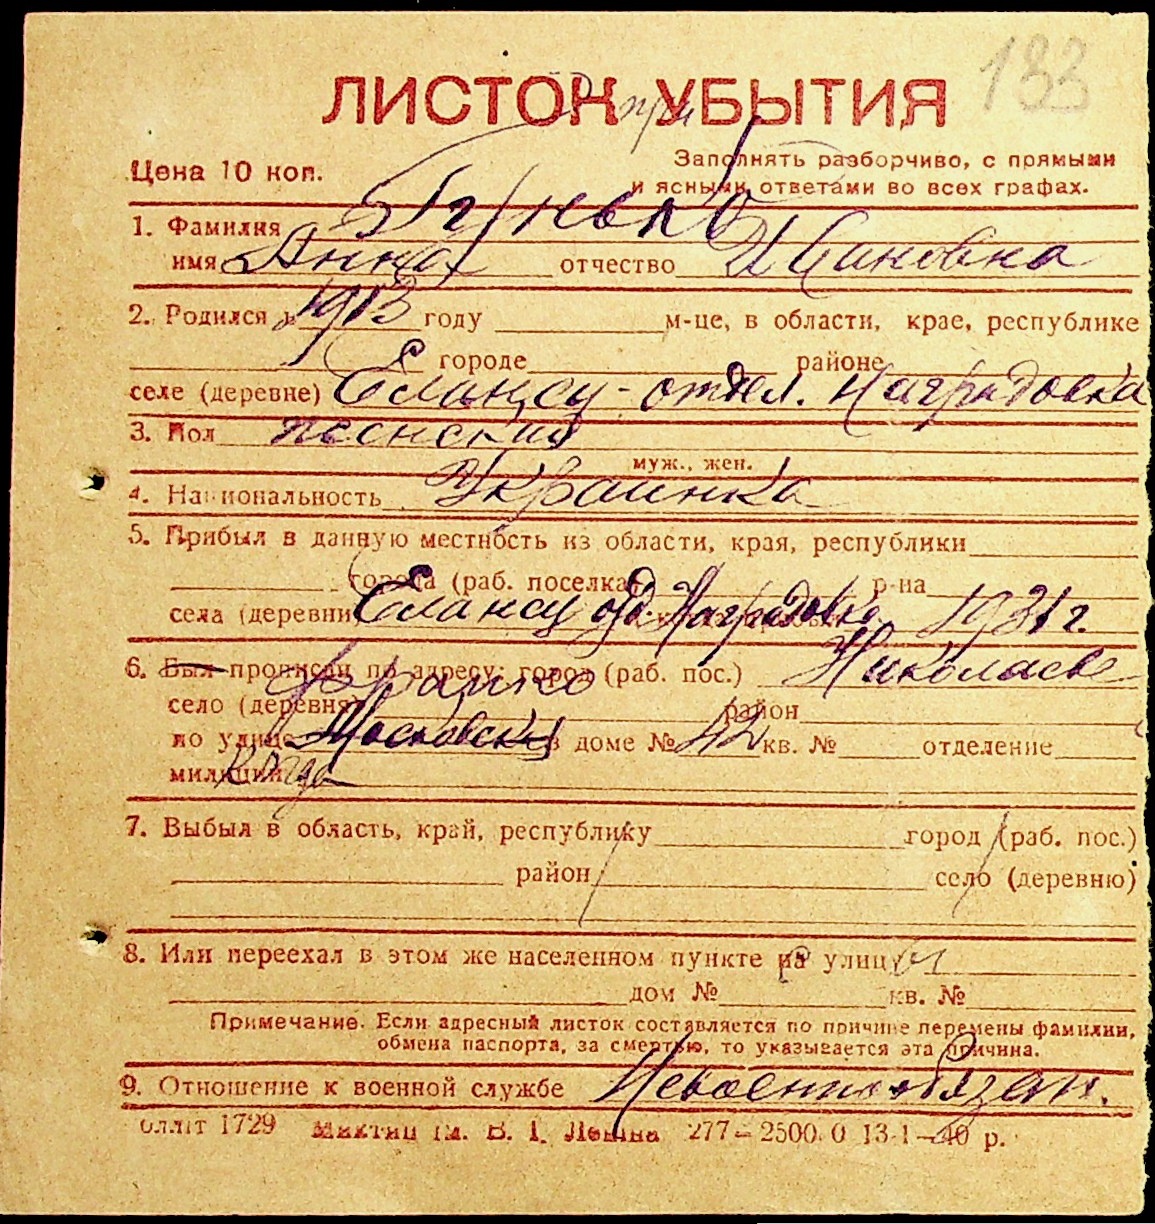 133
ЛИСТОК УБЫТИЯ
Цена 10 коп.
Заполнять разборчиво, с прямыми
и ясными ответами во всех графах.
1. Фамилия
имя Анна отчество Ивановна
2. Родился в 1913 году м-це, в области, крае, республике
городе районе
селе (деревне) отдел.
3. Пол женский
муж., жен.
4. Национальность Украинка
5. Прибыл в данную местность из области, края, республики
города (раб. поселка) р-на
села (деревни 1931 г.
6. Был прописан по адресу: город (раб. пос.) Николаеве
село (деревня) Франко район
по улице Московск в доме № 42 кв. № отделение
милиции
7. Выбыл в область, край, республику город (раб. пос.)
район село (деревню)
8. Или переехал в этом же населенном пункте на улицу
дом № кв. №
Примечание. Если адресный листок составляется по причине перемены фамилии,
обмена паспорта, за смертью, то указывается эта причина.
9. Отношение к военной службе Невоеннообязан.
1729 им. В. І. Леніна 277—2500.0 13-1—40 р.